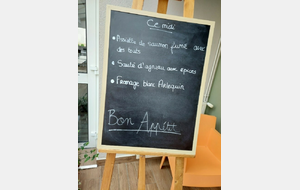 Ce midi
• Assiette de saumon fumé avec
des toasts
• Sauté d'agneau aux épices
• Fromage blanc Arlequin
Bon Appétit